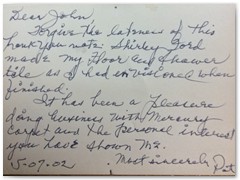 Dear John
Forgive the lateness of this
thank you note. Shirley Ford
made my floor and shower
tile as I had invisioned when
finished.
It has been a pleasure
doing business with Mercury
carpet and the personal interest
you have shown me.
Most sincerely Pat
5-07-02